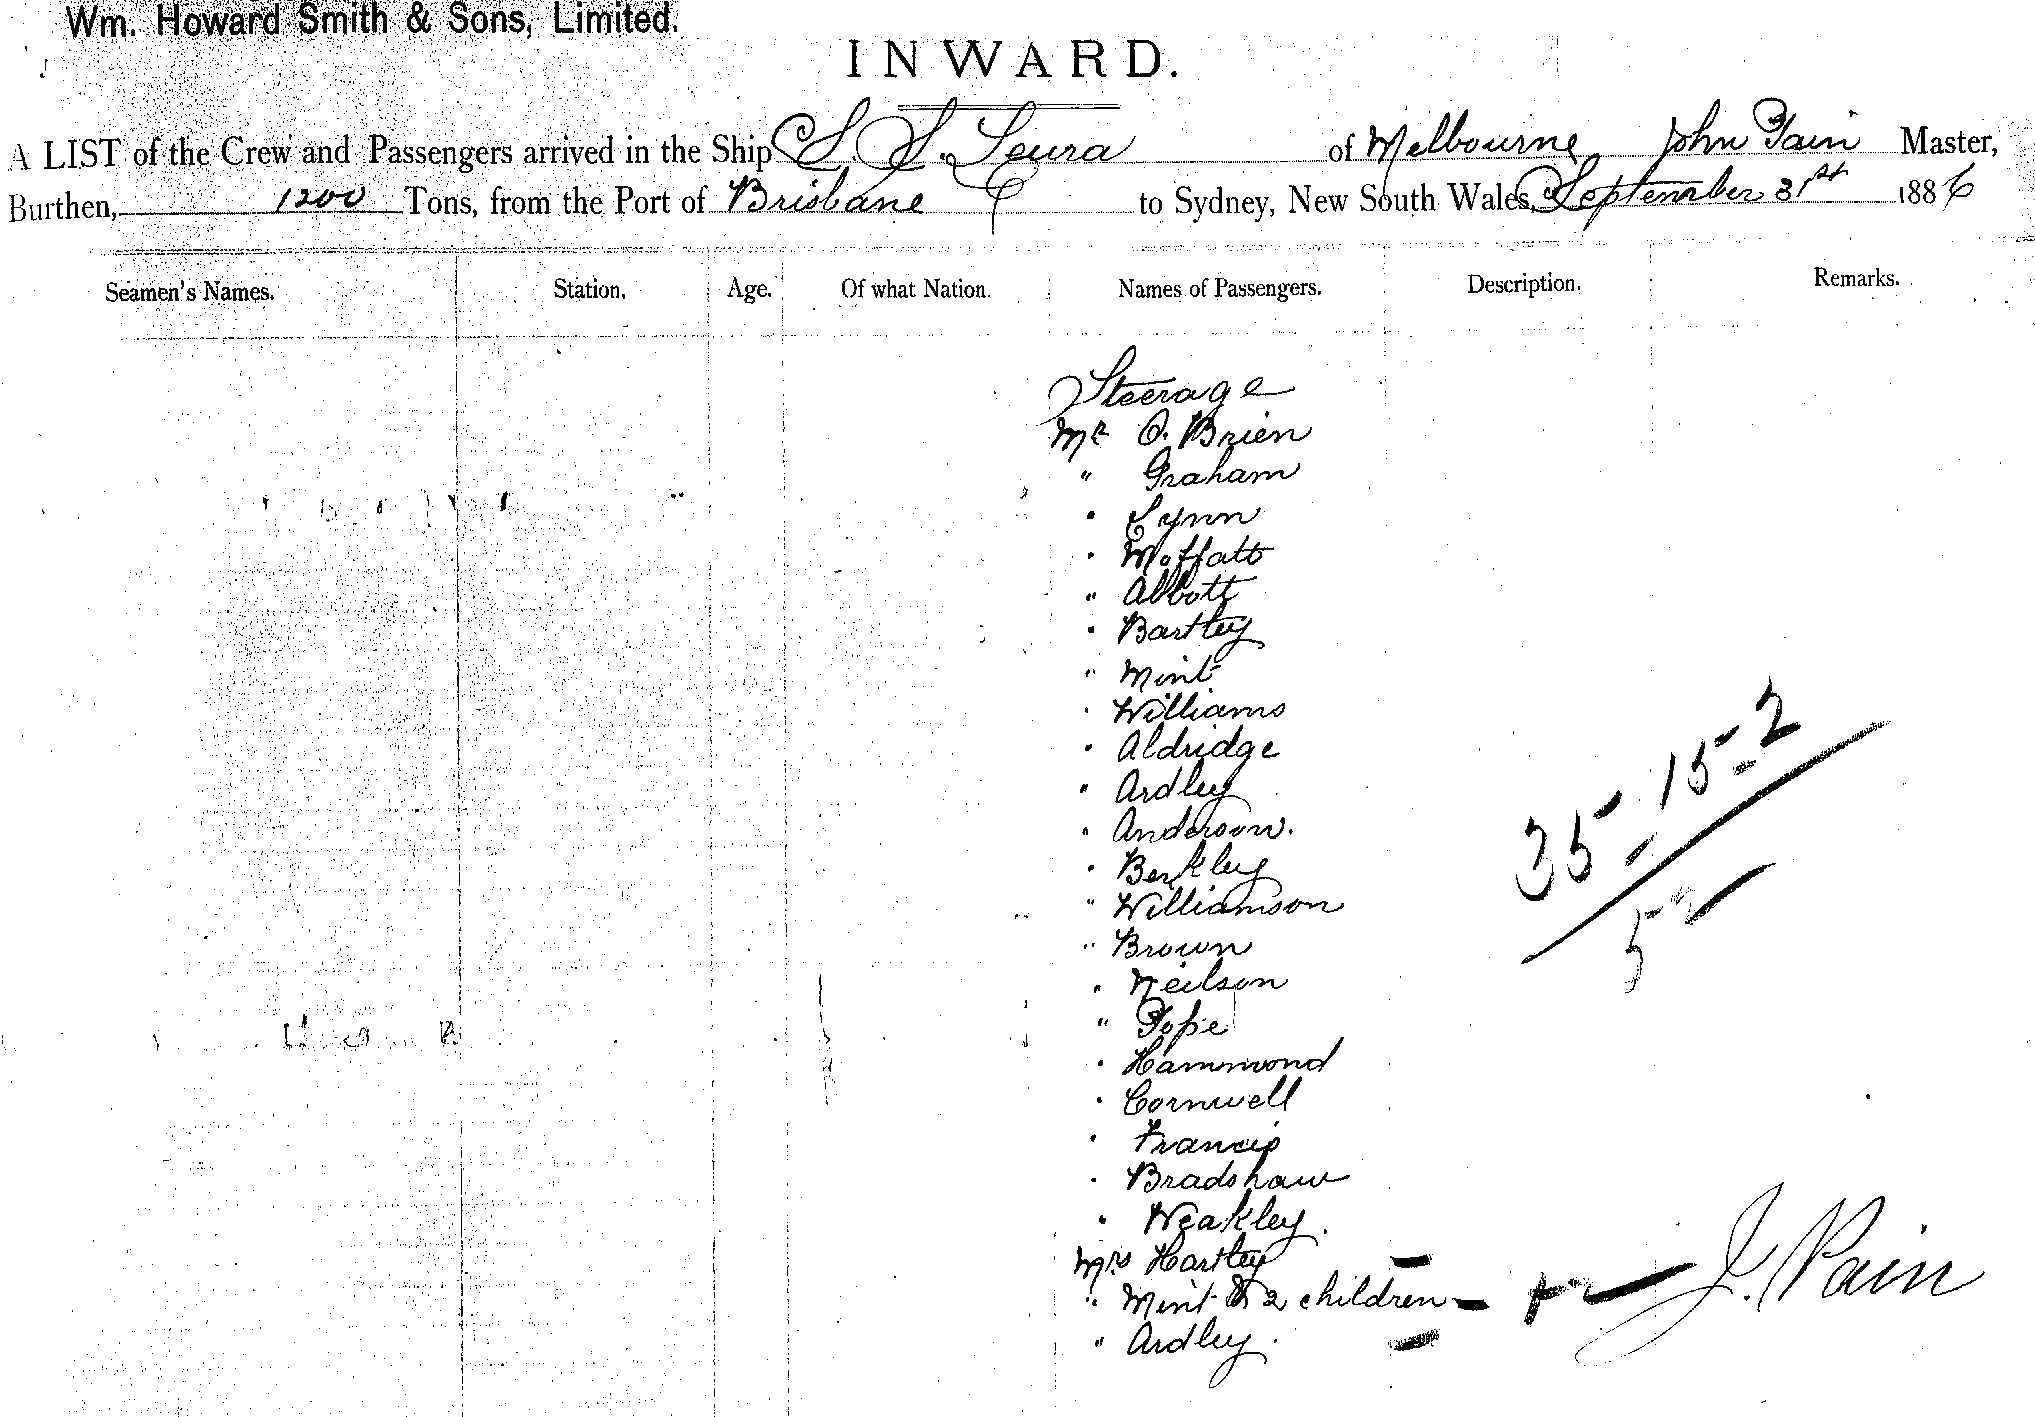 Wm. Howard Smith & Sons, Limited.
INWARD.
A LIST of the Crew and Passengers arrived in the Ship S. S. Leura of Melbourne John Pain Master,
Burthen, 1200 Tons, from the Port of Brisbane to Sydney, New South Wales, September 31st 1886
Seamen's Names. Station. Age. Of what Nation. Names of Passengers. Description. Remarks.
Steerage
Mr O. Brien
" Graham
" Lynn
" Moffatt
" Abbott
" Bartley
" Mint
" Williams
" Aldridge
" Ardley
" Anderson.
" Berkley
" Williamson
" Brown
" Neilson
" Pope
" Hammond
" Cornwell
" Francis
" Bradshaw
" Weakley.
Mrs Hartley
" Mint & 2 children
" Ardley.
35 - 15 - 2
52
J. Pain